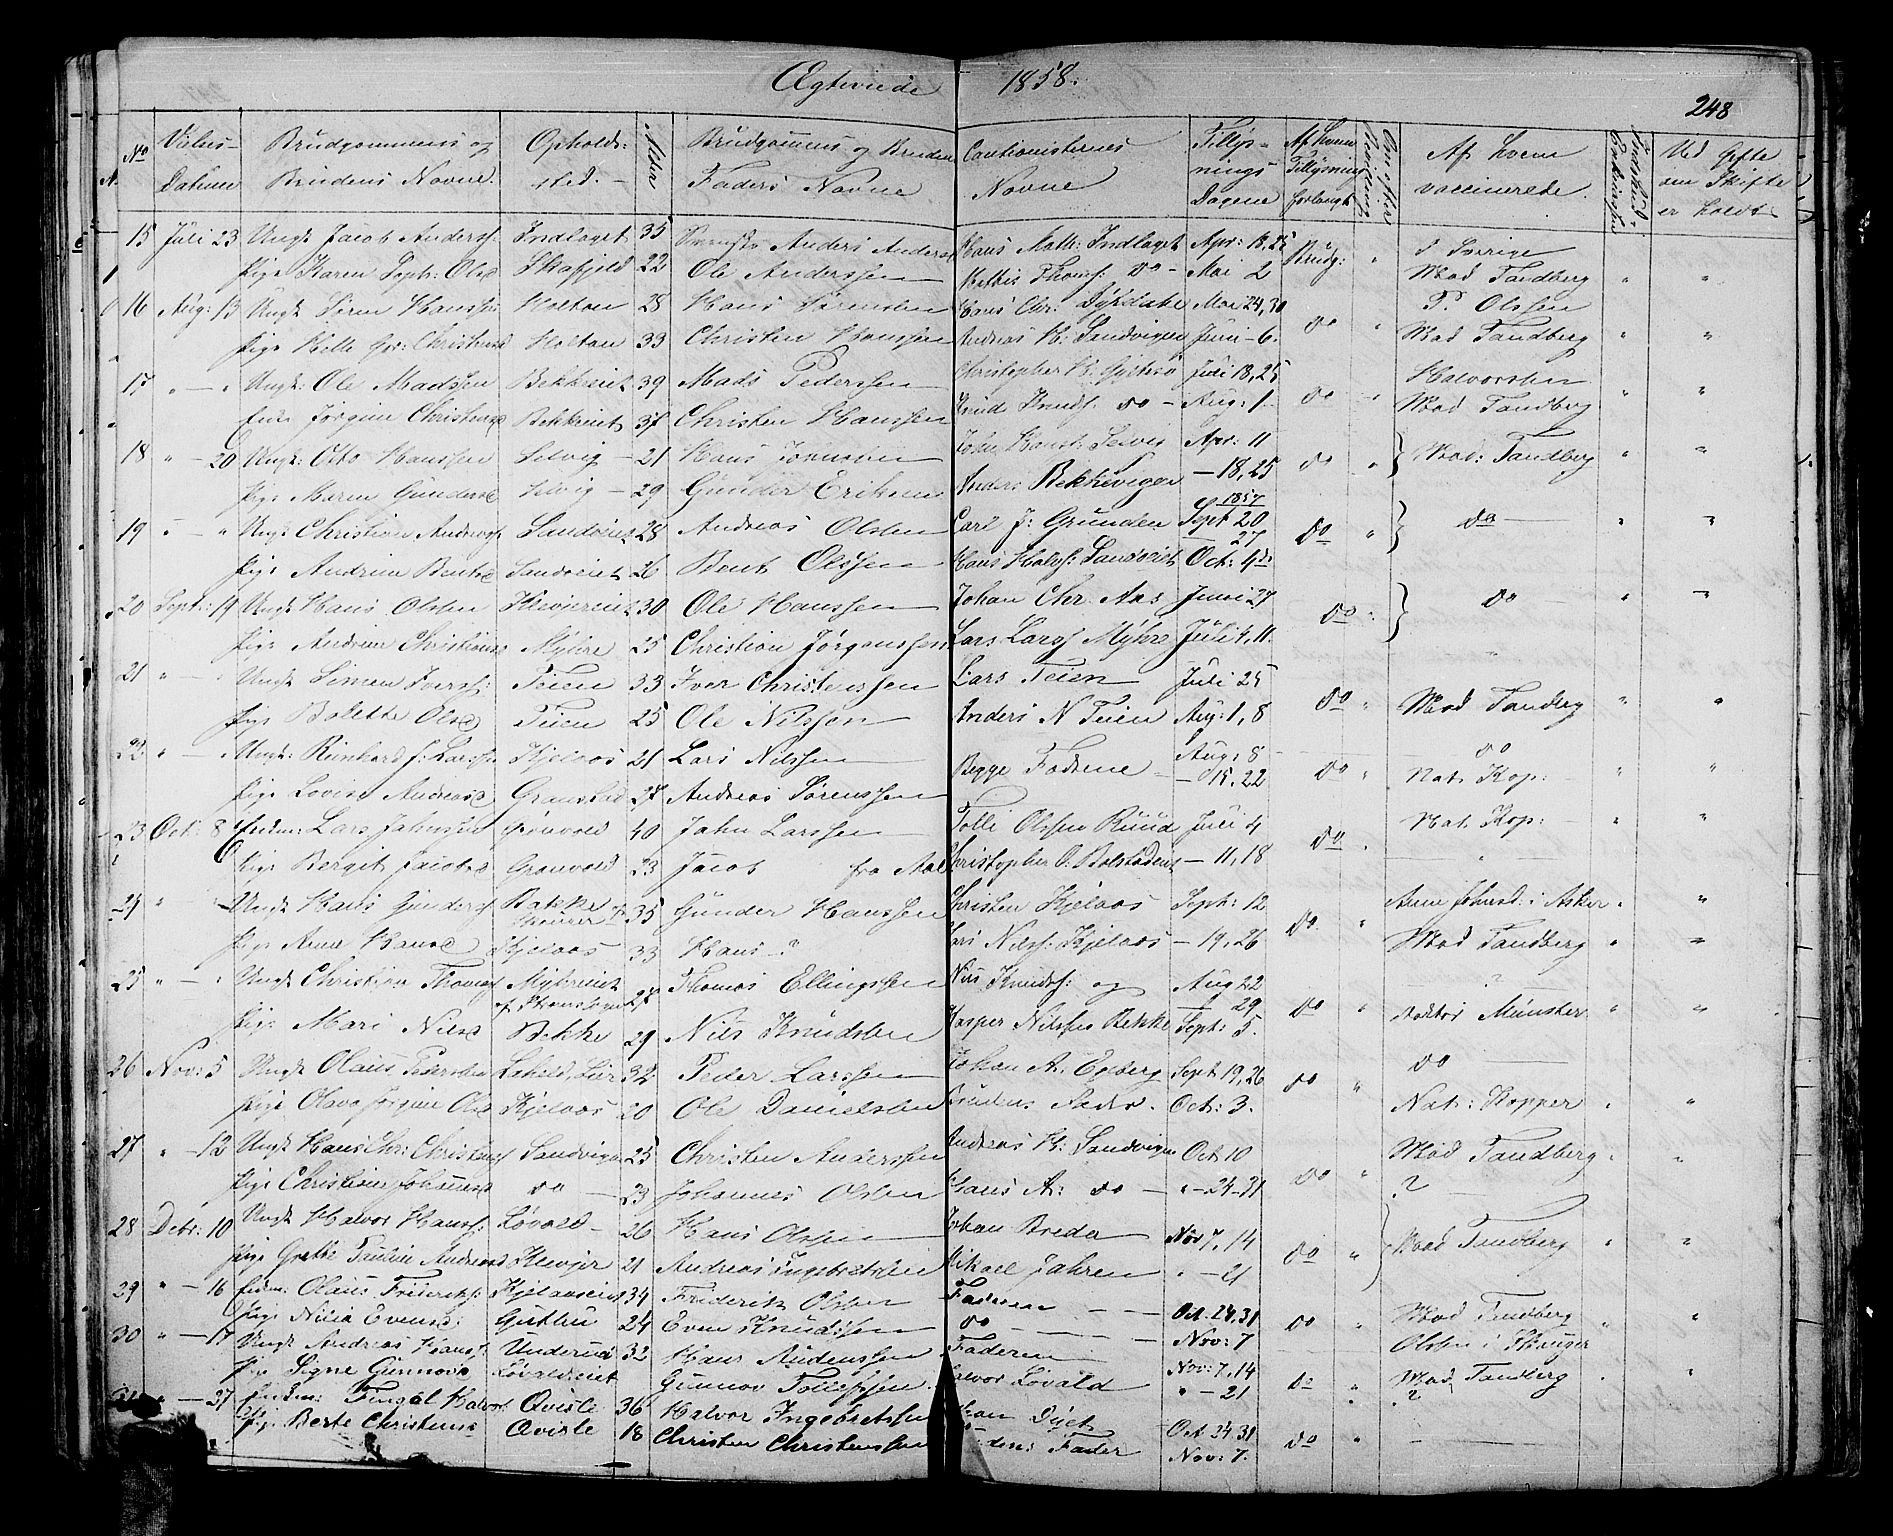 Ægteviede 1858.
248
No Vielses- Datum Brudgommens og Brudens Navne. Opholds- sted. Alder Brudgommens og Brudens Faders Navne Cautionisternes Navne Tillys- nings Dagene Af hvem Tillysning forlangt Om efter Bevilling Af hvem vaccinerede. Ved Gifte om Skifte er holdt
15 Juli 23 Ungk. Jacob Anderss: Indlaget 35 Anders Anderss Hans Math: Indlaget Apr: 18, 25 Brudg: " i Sverige
Pige Karen Soph: Olsd Skafjeld 22 Ole Anderssen Thoms: do Mai 2 Mad Tandberg " "
16 Aug: 13 Ungk Søren Hanssen Holtan 28 Hans Sørenssen Hans Chr: Dyrdale Mai 24, 30 do " P. Olssen
Pige Christensd Holtan 33 Christen Hanssen Andreas H: Sandvigen Juni 6. Mad Tandberg " "
17 " — " Ungk: Ole Madssen Bekkeiet 39 Mads Pederssen Christopher H. Juli 18, 25 do " Halvorssen
Enke Jørgine Christensd Bekkeiet 37 Christen Hanssen Knud Knuds: do Aug: 1 Mad Tandberg " "
18 " — 20 Ungk: Otto Hanssen Selvig 21 Hans John Hanss Selvig Apr: 11 do " Mad: Tandberg " "
Pige Maren Gundersd Selvig 29 Gunder Eriksen Anders Bekkeviggen — 18, 25
19 " — " Ungk: Christian Andreass Sandveiet 28 Andreas Olssen Carl J: Grunden 1857 Sept 20 — 27 do " do " "
Pige Andrine Bentsd Sandveiet 26 Bent Olssen Hans Halvs: Sandveiet Oct: 4de
20 Sept: 19 Ungk Hans Olssen Klevjereiet 30 Ole Hanssen Johan Chr. Aas Juni 27 do " do " "
Pige Andrine Christians Myhre 25 Christian Jørgenssen Lars Larss Myhre Juli 4, 11.
21 " — " Ungk Simen Iverss: Teien 33 Iver Christenssen Lars Teien Juli 25 do " Mad Tandberg " "
Pige Bolette Olsd Teien 25 Ole Nilssen Anders N Teien Aug: 1, 8
22 " — " Ungk: Reinhard J: Larssen Kjelaas 21 Lars Nilssen Begge Fædrene Aug: 8 do " do
Pige Lovise Andreasd Granstad 27 Andreas Sørenssen — 15, 22 Nat: Kop: " "
23 Oct: 8 Enkem: Lars Johnssen Grøvold 40 John Larssen Tolli Olssen Ruud Juli 4 do " Nat: Kop: " "
Pige Bergit Jacobsd Grønvold 23 Jacob fra Aal Christopher O: Bolstadeiet — 11, 18 "
24 " — Ungk Hans Gunders Bakke 35 Gunder Hanssen Christen Kjelaas Sept: 12 do " Anne Johnsd: i Asker " "
Pige Anne Hansd Kjelaas 33 Hans ? Lars Nilss: Kjelaas — 19, 26 Mad Tandberg " "
25 " — " Ungk Christian Thomass Myhreeiet 27 Thomas Ellingssen Nils Knuds: og Aug 22 — 29 do " ?
Pige Mari Nilsd Bekke 29 Nils Knudssen Kasper Nilssen Bekke Sept: 5. Doktor Münster " "
26 Nov: 5 Ungk Olaus Pederssen Lier 32 Peder Larssen Johan A. Egeberg Sept 19, 26 do " do
Pige Olava Jørgine Olsd Kjelaas 20 Ole Danielssen Brudens Fader. Oct: 3. Nat: Kopper " "
27 " — 12 Ungk Hans Chr: Christenss Sandvigen 25 Christen Anderssen Andreas H: Sandvigen Oct 10 do " Mad Tandberg " "
Pige Christian Johannesd do 23 Johannes Olssen Hans A: do " — 24 - 31 ?
28 Debr: 10 Ungk Halvor Hanss: Løvold 26 Hans Olssen Johan Breda Nov 7, 14 do " Mad Tandberg " "
Pige Grethe Pauline Andreasd Klevjer 21 Andreas Ingebretssen Mikael Jahren " — 21
29 " — 16 Enkem: Olaus Frideriks: Kjelaaseiet 34 Friderik Olssen Faderen Oct. 24, 31 do " Mad Tandberg " "
Pige Nilia Evensd: Gutsu 24 Even Knudssen do Nov: 7 Olssen i Skouger
30 " — 17 Ungk Andreas Hanss: Underud 32 Hans Audenssen Faderen Nov: 7, 14 do " Mad Tandberg " "
Pige Signe Gunnorsd Løvoldeiet Gunnor Tollefssen. Halvor Løvold " — 21 ?
31 " — 27 Enkem: Fingal Halvors Qvisle 36 Halvor Ingebretssen Johan Oct 24. 31 do " —
Pige Berte Christensd Qvisle 18 Christen Christenssen Brudens Fader Nov: 7.